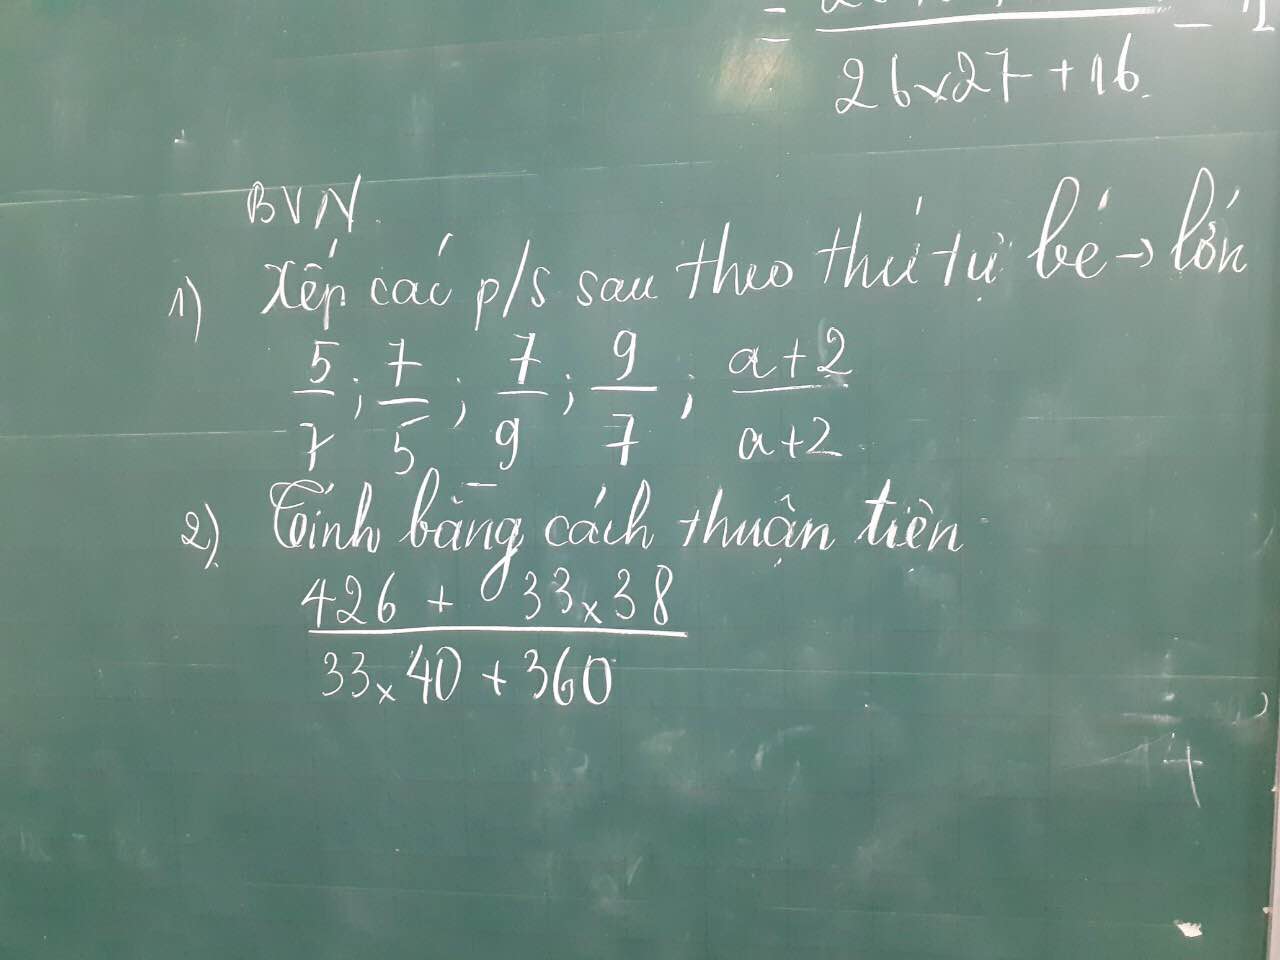 26x27+16
BVN.
1) Xếp các p/s sau theo thứ tự bé → lớn
5/7; 7/5; 7/9; 9/7; a+2/a+2
2) Tính bằng cách thuận tiện
426 + 33x38
33x40 + 360